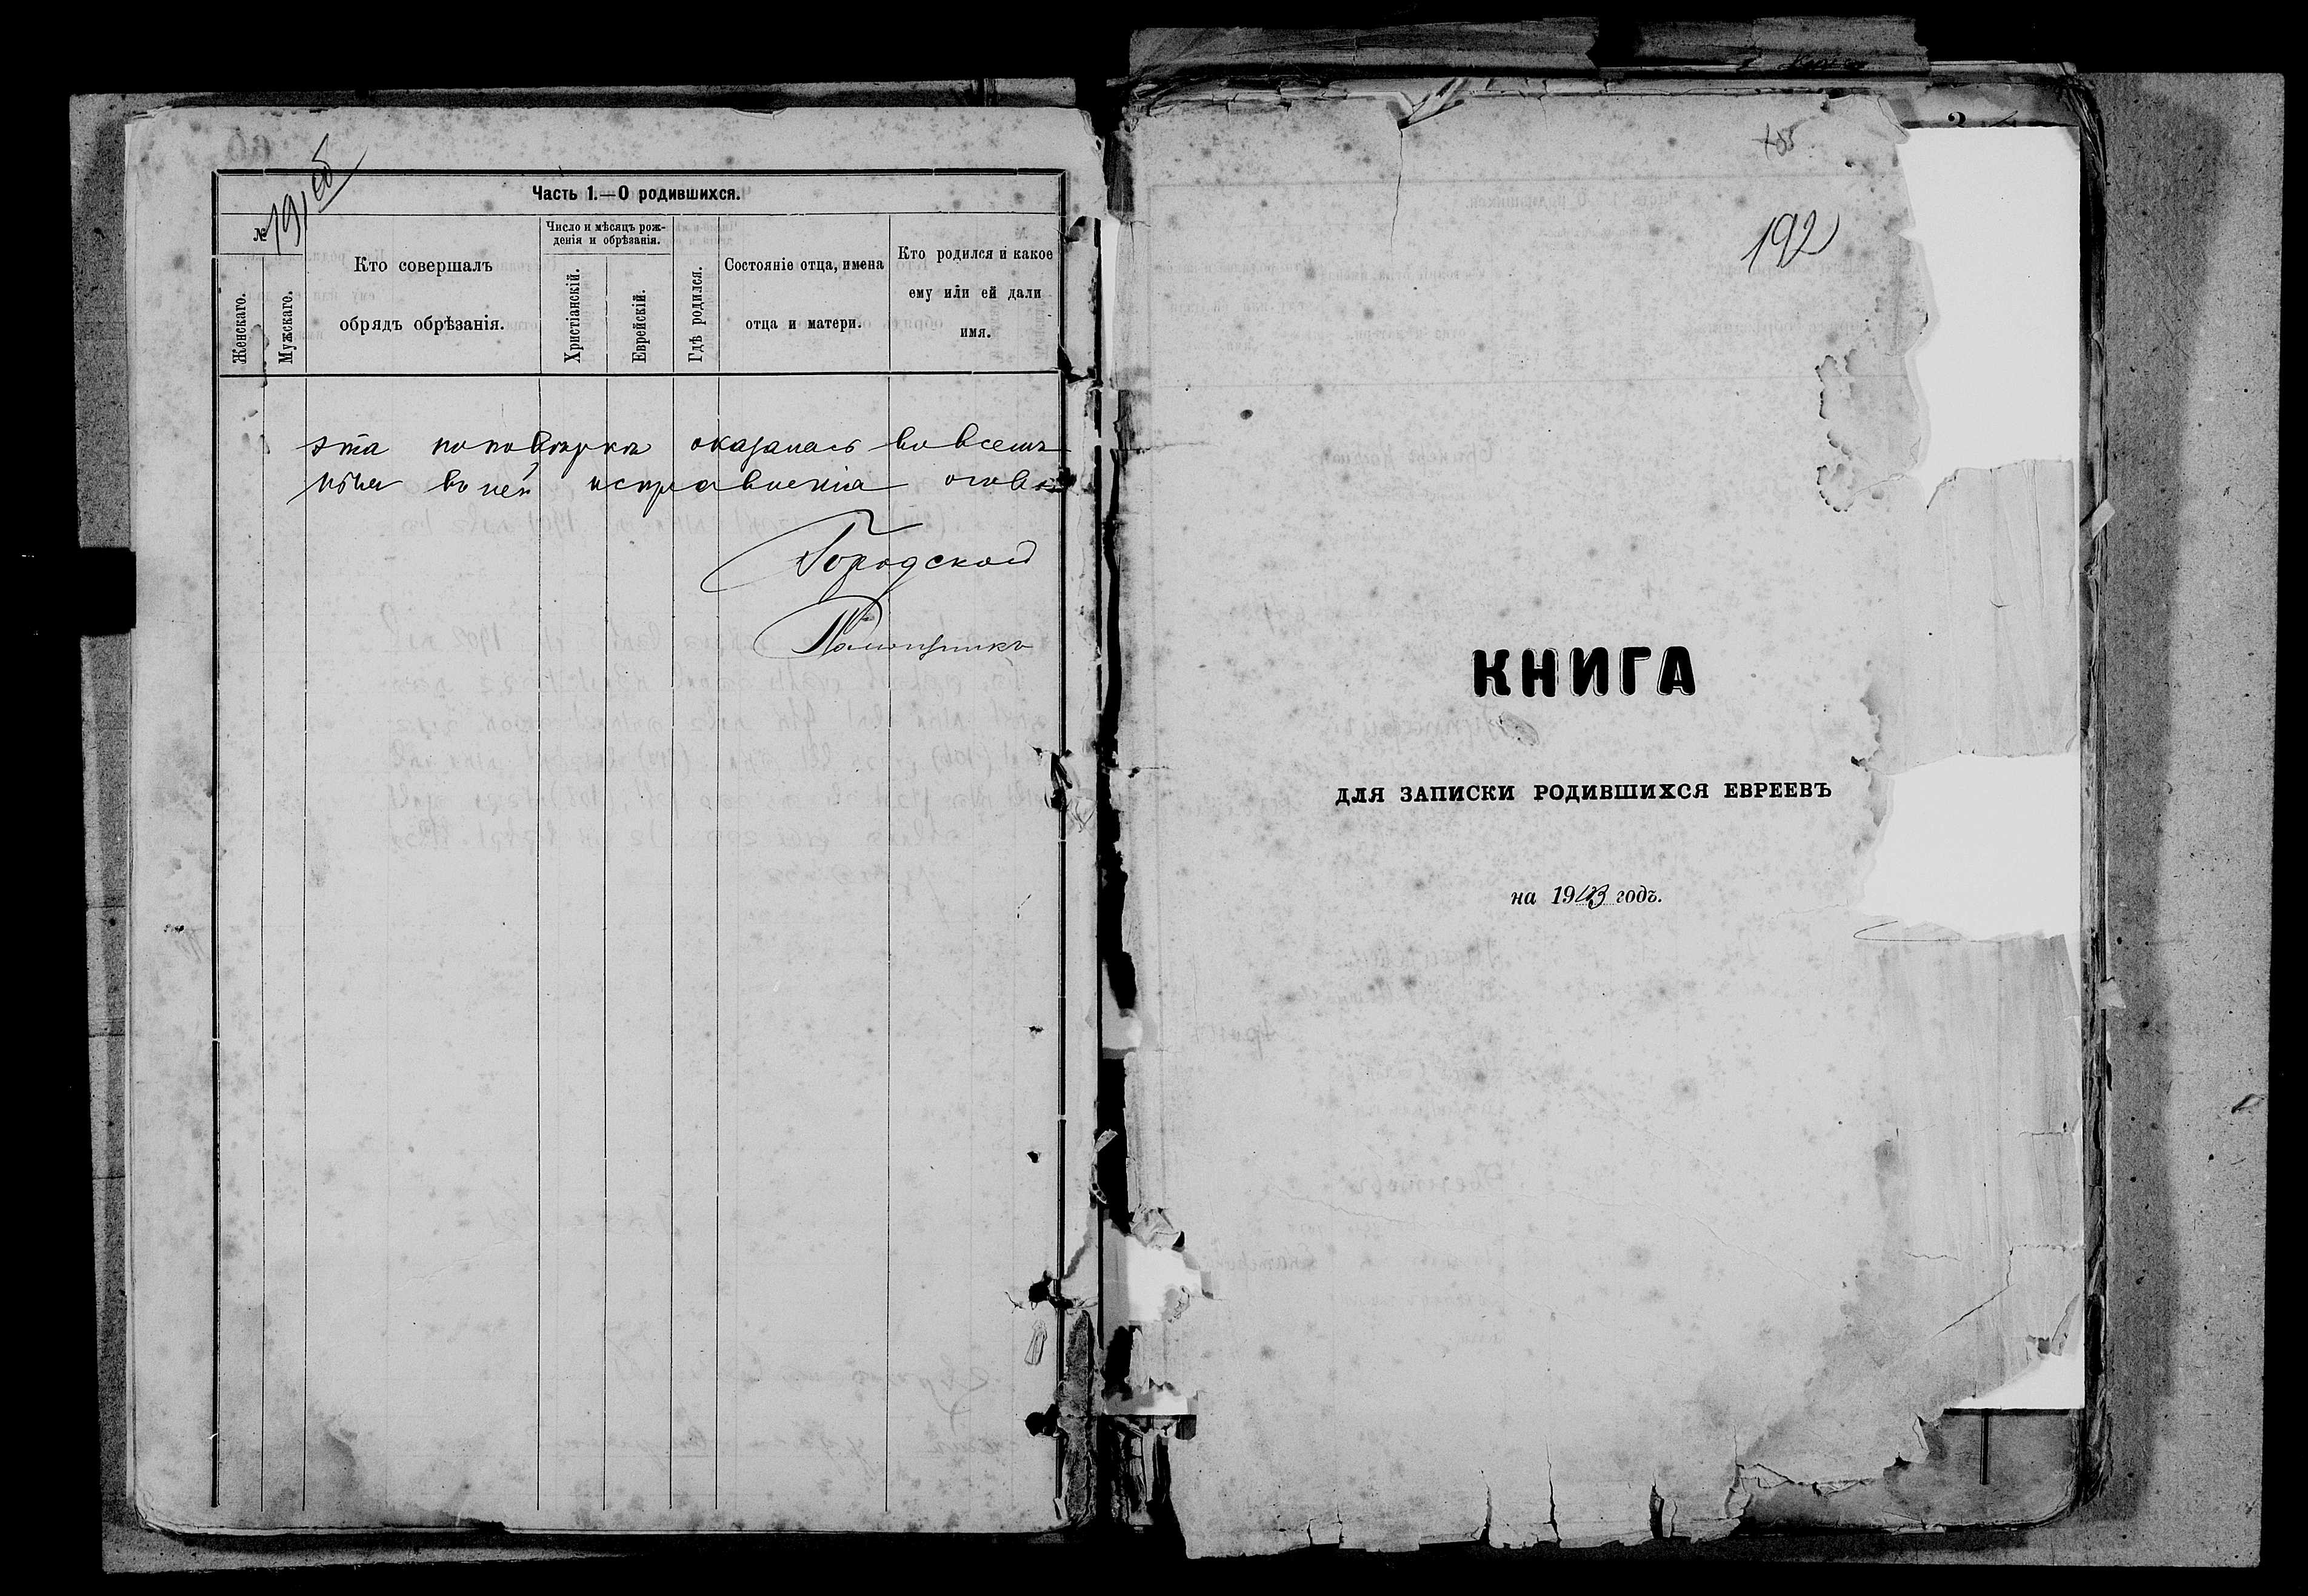 191 об
Часть 1.—О родившихся.
№
Женскаго.
Мужскаго.
Кто совершалъ
обрядъ обрѣзанія.
Число и мѣсяцъ рож-
денія и обрѣзанія.
Христіанскій.
Еврейскій.
Гдѣ родился.
Состояніе отца, имена
отца и матери.
Кто родился и какое
ему или ей дали
имя.
эта по повѣркѣ оказалась во всемъ
въ ней исправленія
Городской
192
КНИГА
ДЛЯ ЗАПИСКИ РОДИВШИХСЯ ЕВРЕЕВЪ
на 1903 годъ.